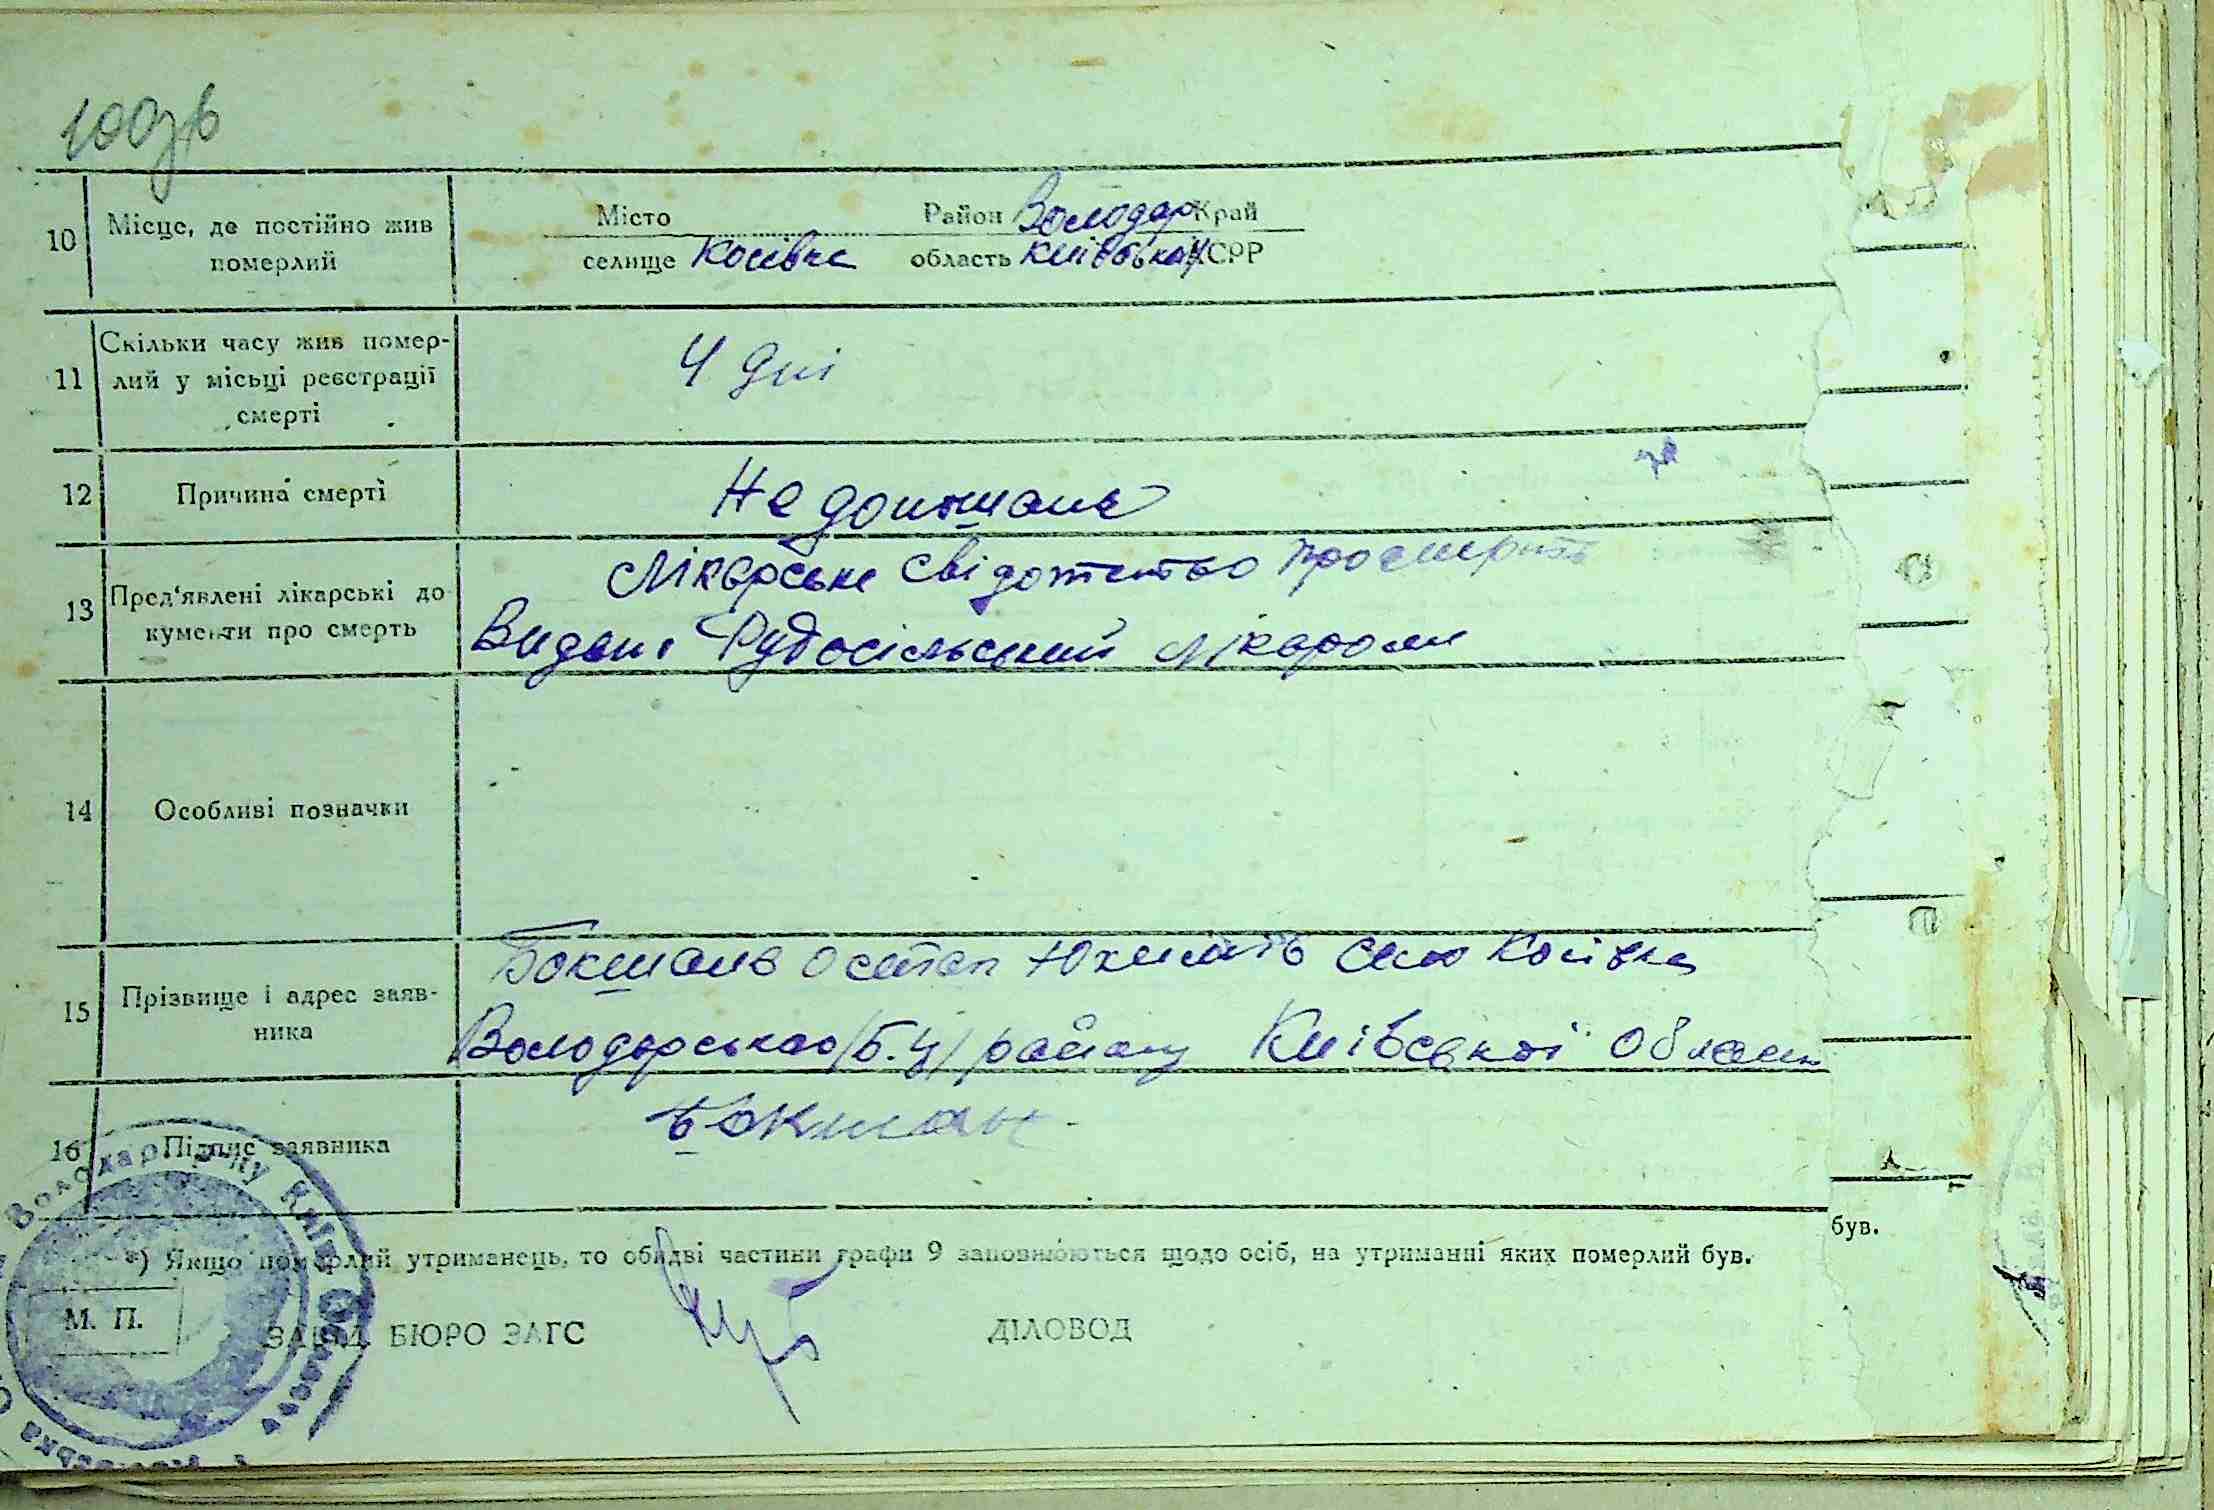 100зв
10 Місце, де постійно жив померлий
Місто Район Володар Край
селище Косівка область Київська УСРР
11 Скільки часу жив помер-
лий у місьці реєстрації
смерті
4 дні
12 Причина смерті
Недоношане
13 Пред'явлені лікарські до
кументи про смерть
Лікарське свідотство про смерть
Видане Рудосільський лікаром
14 Особливі позначки
15 Прізвище і адрес заяв-
ника
Бокшань Остап село Косівка
Володарського /Б.Ц/ району Київської Області
16 Підпис заявника
Бокшан
*) Якщо померлий утриманець, то обидві частини графи 9 заповнюються щодо осіб, на утриманні яких померлий був.
був.
М. П.
ЗАВІД. БЮРО ЗАГС ДІЛОВОД